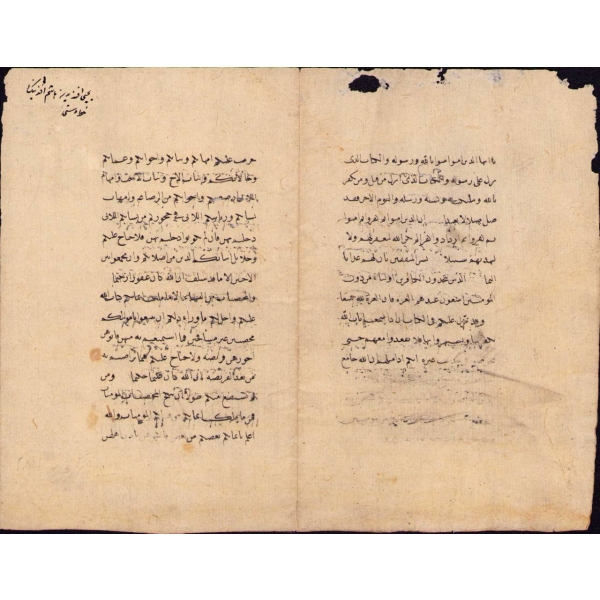 يا ايها الذين امنوا امنوا بالله ورسوله والكتاب الذى
نزل على رسوله والكتاب الذى انزل من قبل ومن يكفر
بالله وملئكته وكتبه ورسله واليوم الاخر فقد
ضل ضلالا بعيدا ان الذين امنوا ثم كفروا ثم امنوا
ثم كفروا ثم ازدادوا كفرا لم يكن الله ليغفر لهم ولا
ليهديهم سبيلا بشر المنافقين بان لهم عذابا
اليما الذين يتخذون الكافرين اولياء من دون
المؤمنين ايبتغون عندهم العزة فان العزة لله جميعا
وقد نزل عليكم فى الكتاب ان اذا سمعتم ايات الله
يكفر بها ويستهزا بها فلا تقعدوا معهم حتى
يخوضوا فى حديث غيره انكم اذا مثلهم ان الله جامع
خط دستى
حرمت عليكم امهاتكم وبناتكم واخواتكم وعماتكم
وخالاتكم وبنات الاخ وبنات الاخت وامهاتكم
اللاتى ارضعنكم واخواتكم من الرضاعة وامهات
نسائكم وربائبكم اللاتى فى حجوركم من نسائكم اللاتى
دخلتم بهن فان لم تكونوا دخلتم بهن فلا جناح عليكم
وحلائل ابنائكم الذين من اصلابكم وان تجمعوا بين
الاختين الا ما قد سلف ان الله كان غفورا رحيما
والمحصنات من النساء الا ما ملكت ايمانكم كتاب الله
عليكم واحل لكم ما وراء ذلكم ان تبتغوا باموالكم
محصنين غير مسافحين فما استمتعتم به منهن فاتوهن
اجورهن فريضة ولا جناح عليكم فيما تراضيتم به
من بعد الفريضة ان الله كان عليما حكيما ومن
لم يستطع منكم طولا ان ينكح المحصنات المؤمنات
فمن ما ملكت ايمانكم من فتياتكم المؤمنات والله
اعلم بايمانكم بعضكم من بعض